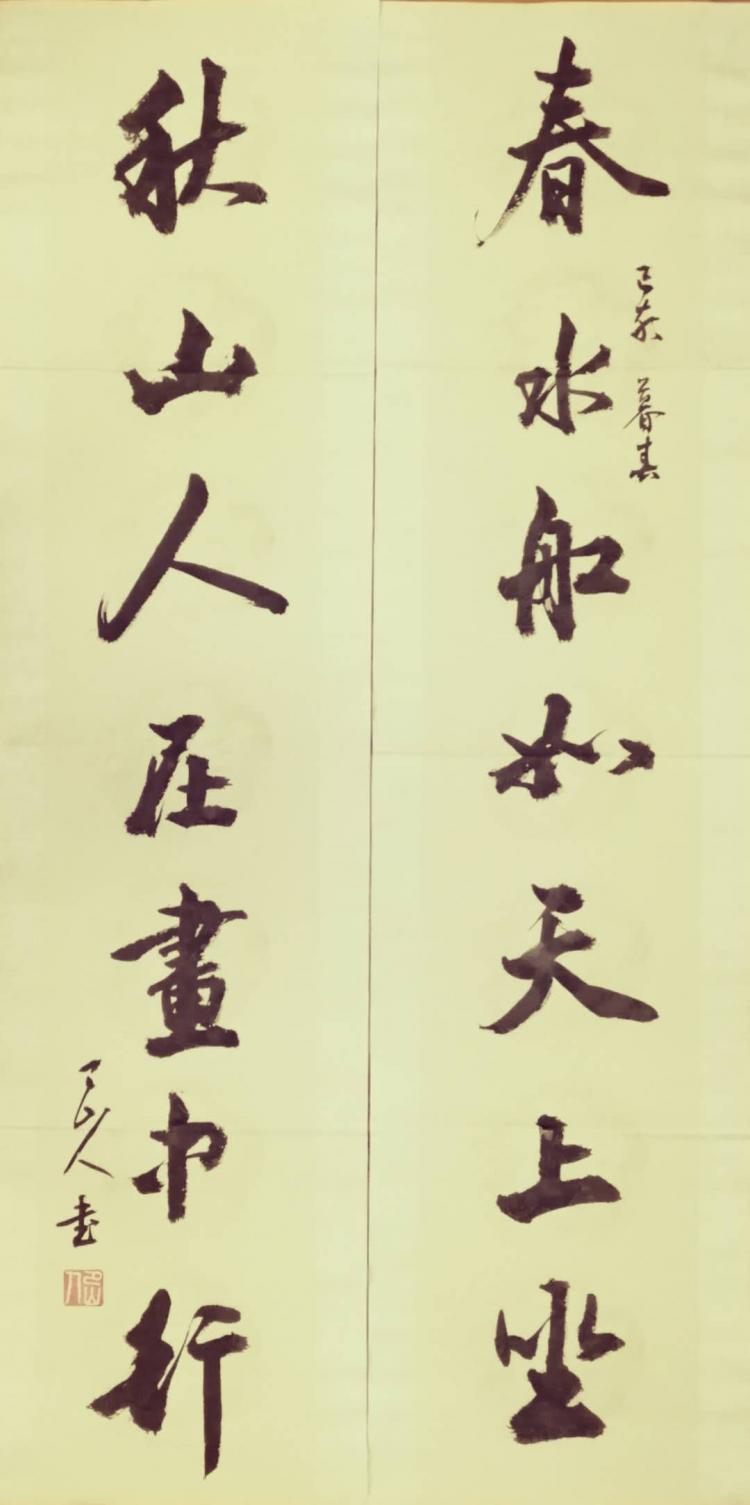 春水船如天上坐
己亥 暮春
秋山人在畫中行
山人書